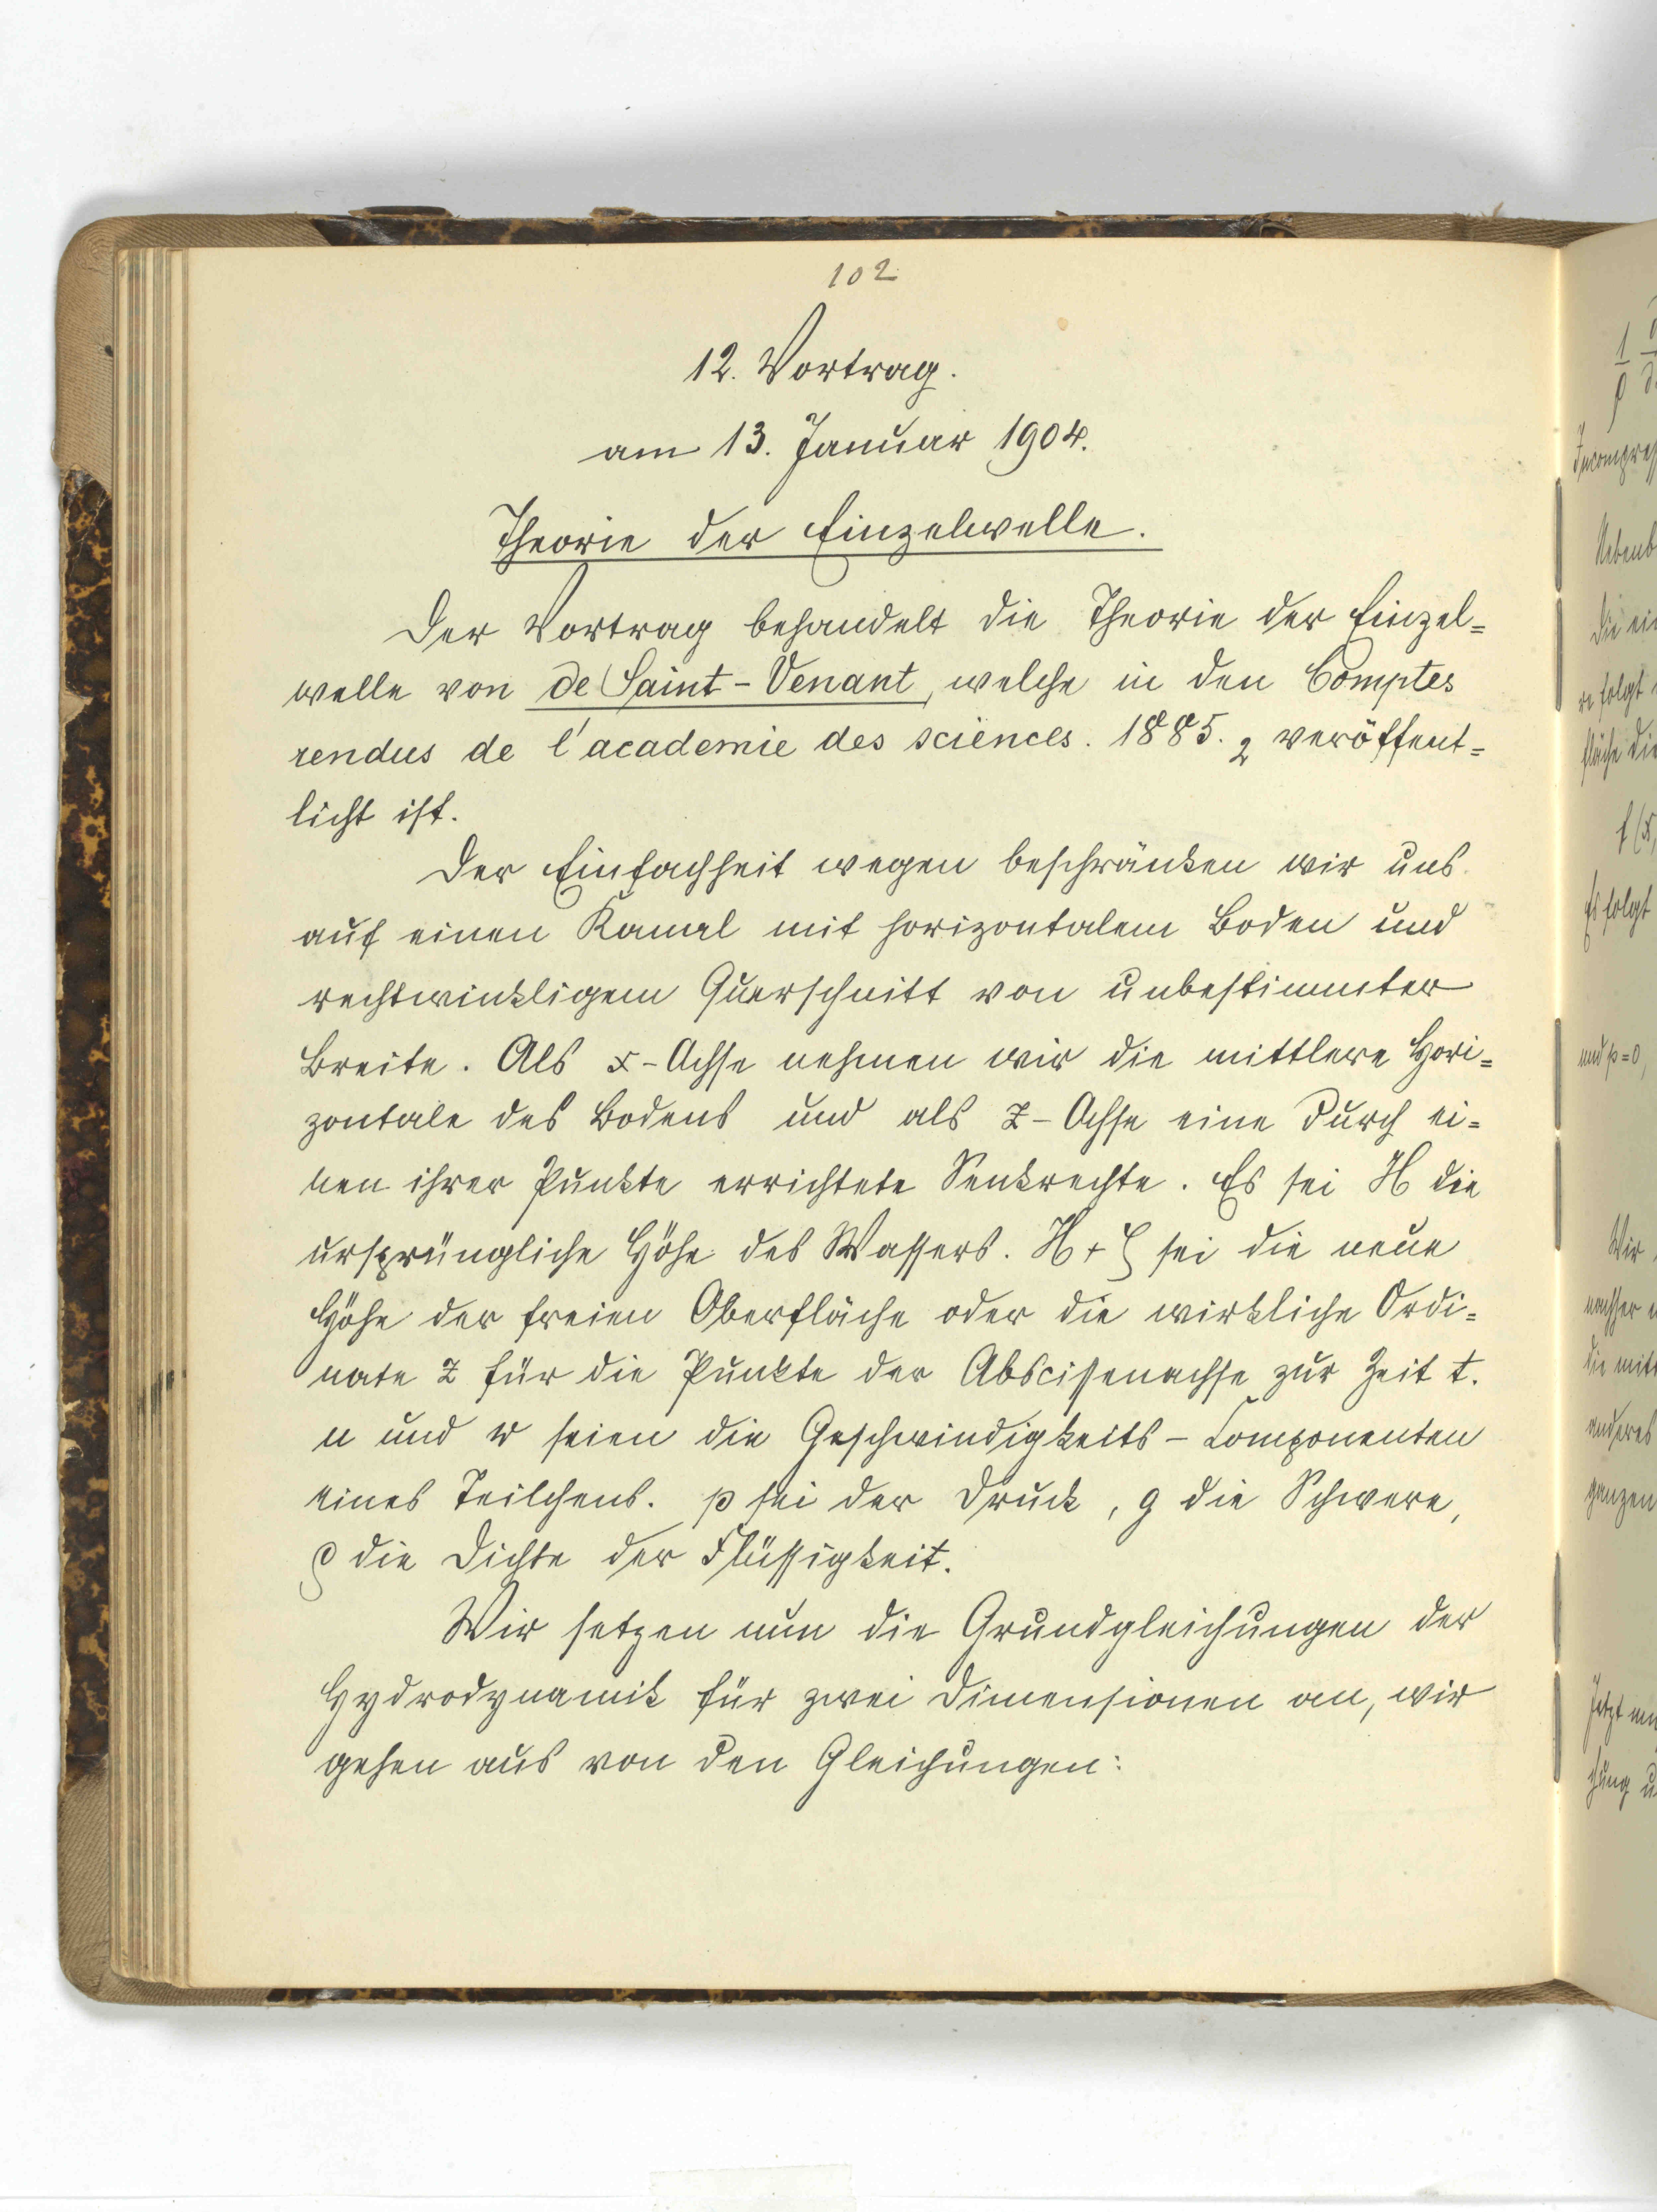 102
12. Vortrag.
am 13. Januar 1904.
Theorie der Einzelwelle.
Der Vortrag behandelt die Theorie der Einzel=
welle von de Saint-Venant, welche in den Comptes
rendus de l'academie des sciences. 1885. 2 veröffent=
licht ist.
Der Einfachheit wegen beschränken wir uns
auf einen Kanal mit horizontalem Boden und
rechtwinkligem Querschnitt von unbestimmter
Breite. Als x-Achse nehmen wir die mittlere Hori=
zontale des Bodens und als z-Achse eine durch ei=
nen ihrer Punkte errichtete Senkrechte. Es sei H die
ursprüngliche Höhe des Wassers. H+ζ sei die neue
Höhe der freien Oberfläche oder die wirkliche Ordi=
nate z für die Punkte der Abscissenachse zur Zeit t.
u und w seien die Geschwindigkeits-Componenten
eines Teilchens. p sei der Druck, g die Schwere,
ρ die Dichte der Flüssigkeit.
Wir setzen nun die Grundgleichungen der
Hydrodynamik für zwei Dimensionen an, wir
gehen aus von den Gleichungen: